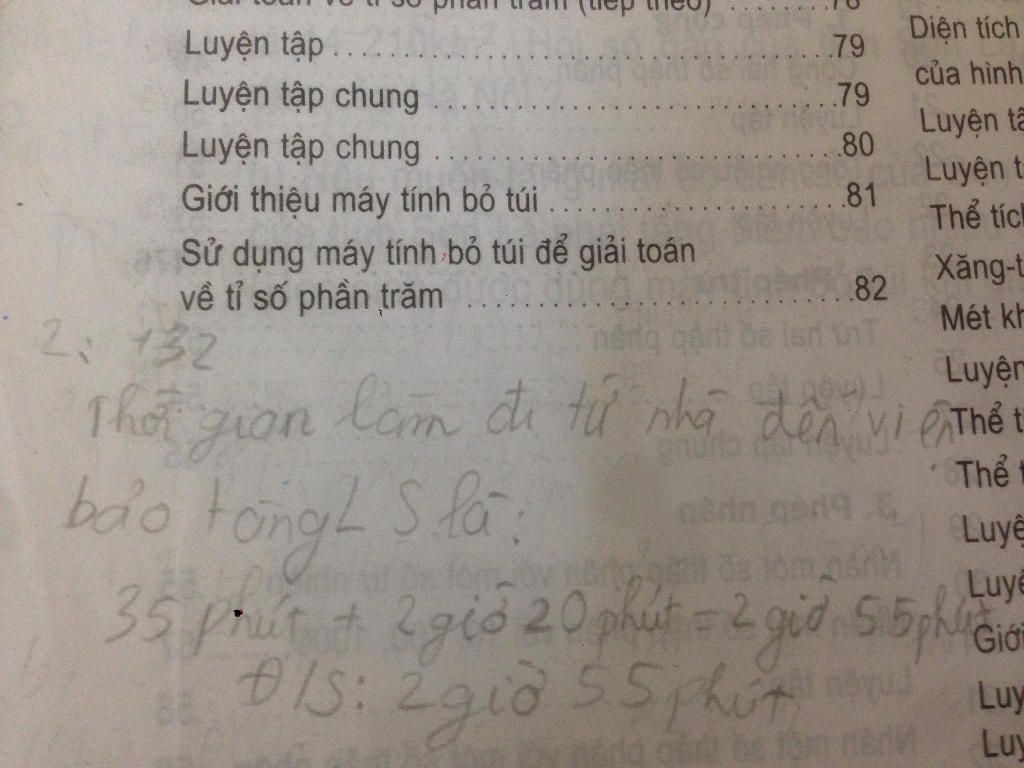 Giải toán về tỉ số phần trăm (tiếp theo) ........ 78
Luyện tập ........ 79
Luyện tập chung ........ 79
Luyện tập chung ........ 80
Giới thiệu máy tính bỏ túi ........ 81
Sử dụng máy tính bỏ túi để giải toán
về tỉ số phần trăm ........ 82
2: 132
Thời gian lâm đi từ nhà đến viện
bảo tàng L S là:
35 phút + 2 giờ 20 phút = 2 giờ 55 phút
Đ/S: 2 giờ 55 phút
Diện tích
của hình
Luyện tậ
Luyện t
Thể tích
Xăng-t
Mét kh
Luyện
Thể t
Thể t
Luyệ
Luyệ
Giới
Luy
Luy